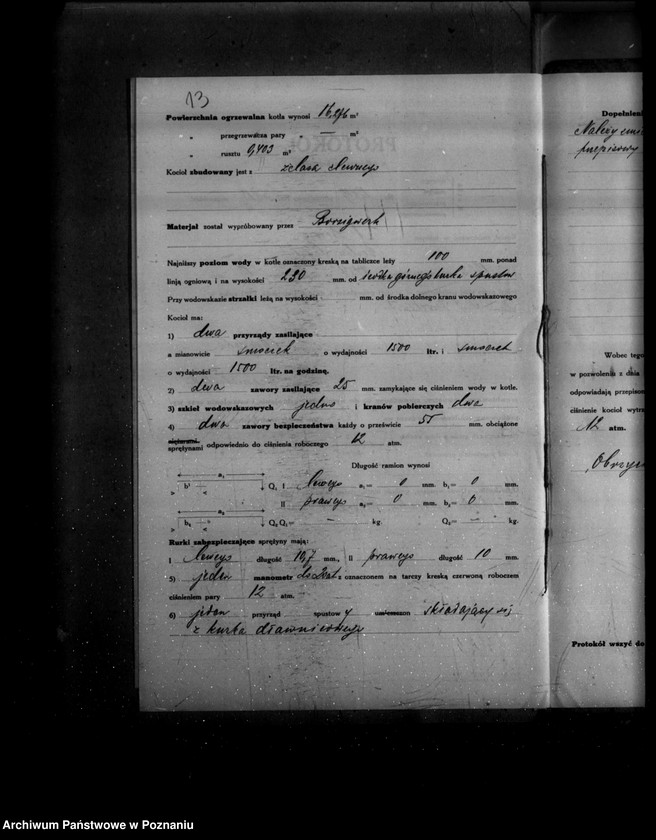 13
Powierzchnia ogrzewalna kotła wynosi 16,276 m²
„ przegrzewalna pary „ — m²
„ rusztu 0,403 m²
Kocioł zbudowany jest z żelaza
Materjał został wypróbowany przez Borsigwerk
Najniższy poziom wody w kotle oznaczony kreską na tabliczce leży 100 mm. ponad
linją ogniową i na wysokości 230 mm. od środka górnego kurka spustow
Przy wodowskazie strzałki leżą na wysokości mm. od środka dolnego kranu wodowskazowego
Kocioł ma:
1) dwa przyrządy zasilające
a mianowicie smoczek o wydajności 1500 ltr. i smoczek
o wydajności 1500 ltr. na godzinę.
2) dwa zawory zasilające 25 mm. zamykające się ciśnieniem wody w kotle.
3) szkieł wodowskazowych jedno i kranów pobierczych dwa
4) dwa zawory bezpieczeństwa każdy o prześwicie 55 mm. obciążone
sprężynami odpowiednio do ciśnienia roboczego 12 atm.
Długość ramion wynosi
a₁
b¹ Q₁ I lewego a₁= 0 mm. b₁= 0 mm.
II prawego a₂= 0 mm. b₂= 0 mm.
a₂
b₂ Q₂ Q₁= — kg. Q₂= — kg.
Rurki zabezpieczające sprężyny mają:
I lewego długość 10,7 mm., II prawego długość 10 mm.
5) jeden manometr do atm z oznaczonem na tarczy kreską czerwoną roboczem
ciśnieniem pary 12 atm.
6) jeden przyrząd spustowy składający się
z kurka dławnicowego
Dopełnieni
Należy
przepisowy
Wobec tego
w pozwoleniu z dnia
odpowiadają przepiso
ciśnienie kocioł wytrz
12 atm.
Obrzyc
Protokół wszyć do
Archiwum Państwowe w Poznaniu